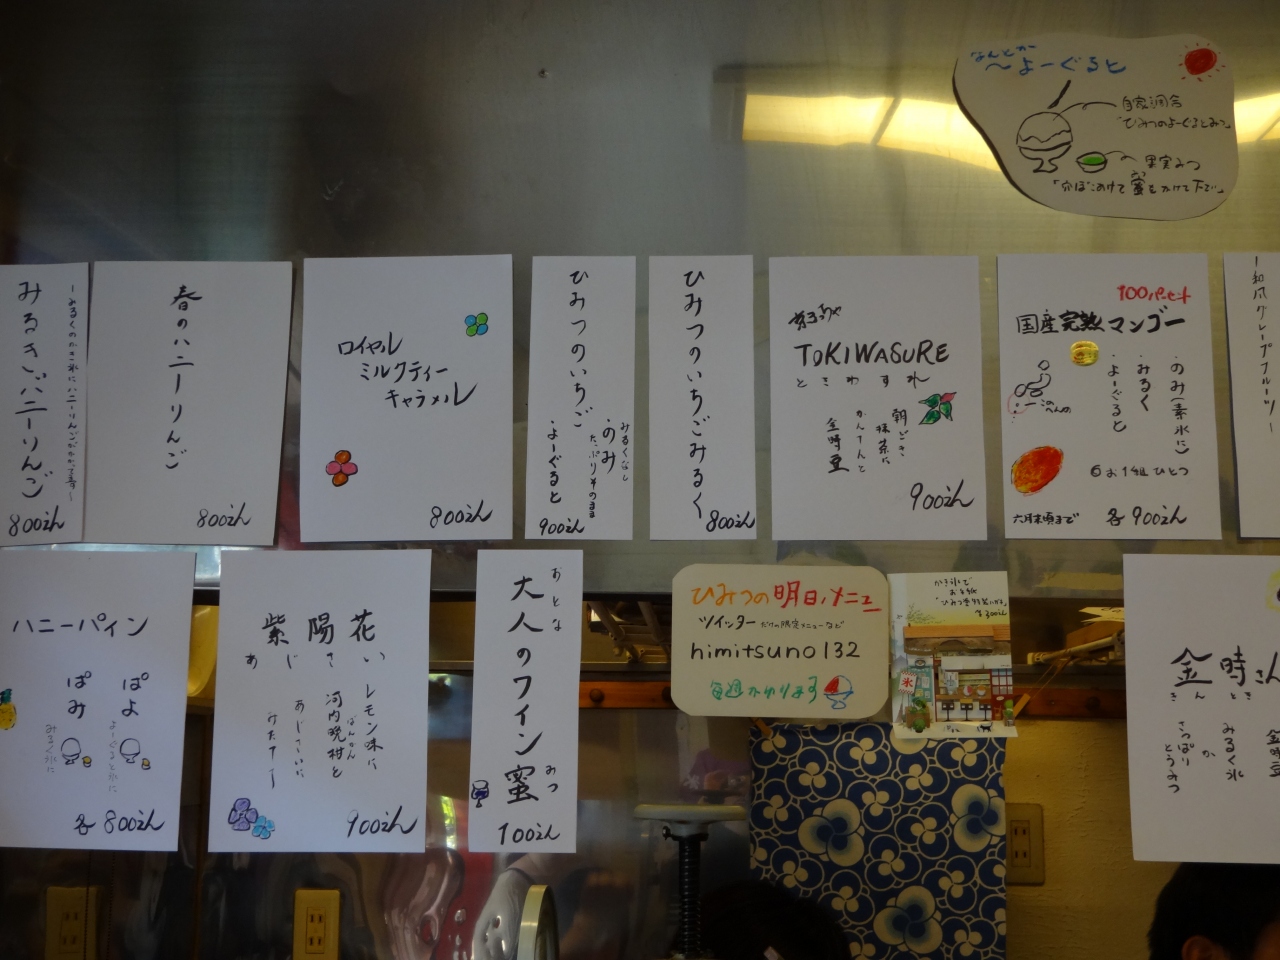 なんとか
〜よーぐると
自家調合
「ひみつのよーぐるとみつ」
果実みつ
「穴ぼこあけて蜜もかけて下さい」
みるきぃハニーりんご
800えん
春のハニーりんご
800えん
ロイヤル
ミルクティー
キャラメル
800えん
ひみつのいちご
みるくなし
・のみ
たっぷりそのまま
・よーぐると
900えん
ひみつのいちごみるく
800えん
TOKIWASURE
ときわすれ
抹茶に
かんてんと
金時豆
900えん
100パーセント
国産完熟マンゴー
・のみ(素氷に)
・みるく
・よーぐると
お1組ひとつ
六月末頃まで
各900えん
グレープフルーツ
ハニーパイン
ぽよ
よーぐると氷に
ぽみ
みるく氷に
各800えん
紫陽花
あじさい
レモン味に
河内晩柑と
ばんかん
あじさいに
みたてて
900えん
おとな
大人のワイン蜜
みつ
100えん
ひみつの明日メニュー
ツイッター だけの限定メニューなど
himitsuno132
毎週かわります
かき氷で
お手紙
氷
金時さん
きんとき
金時豆
みるく氷
か
さっぱり
とうみつ